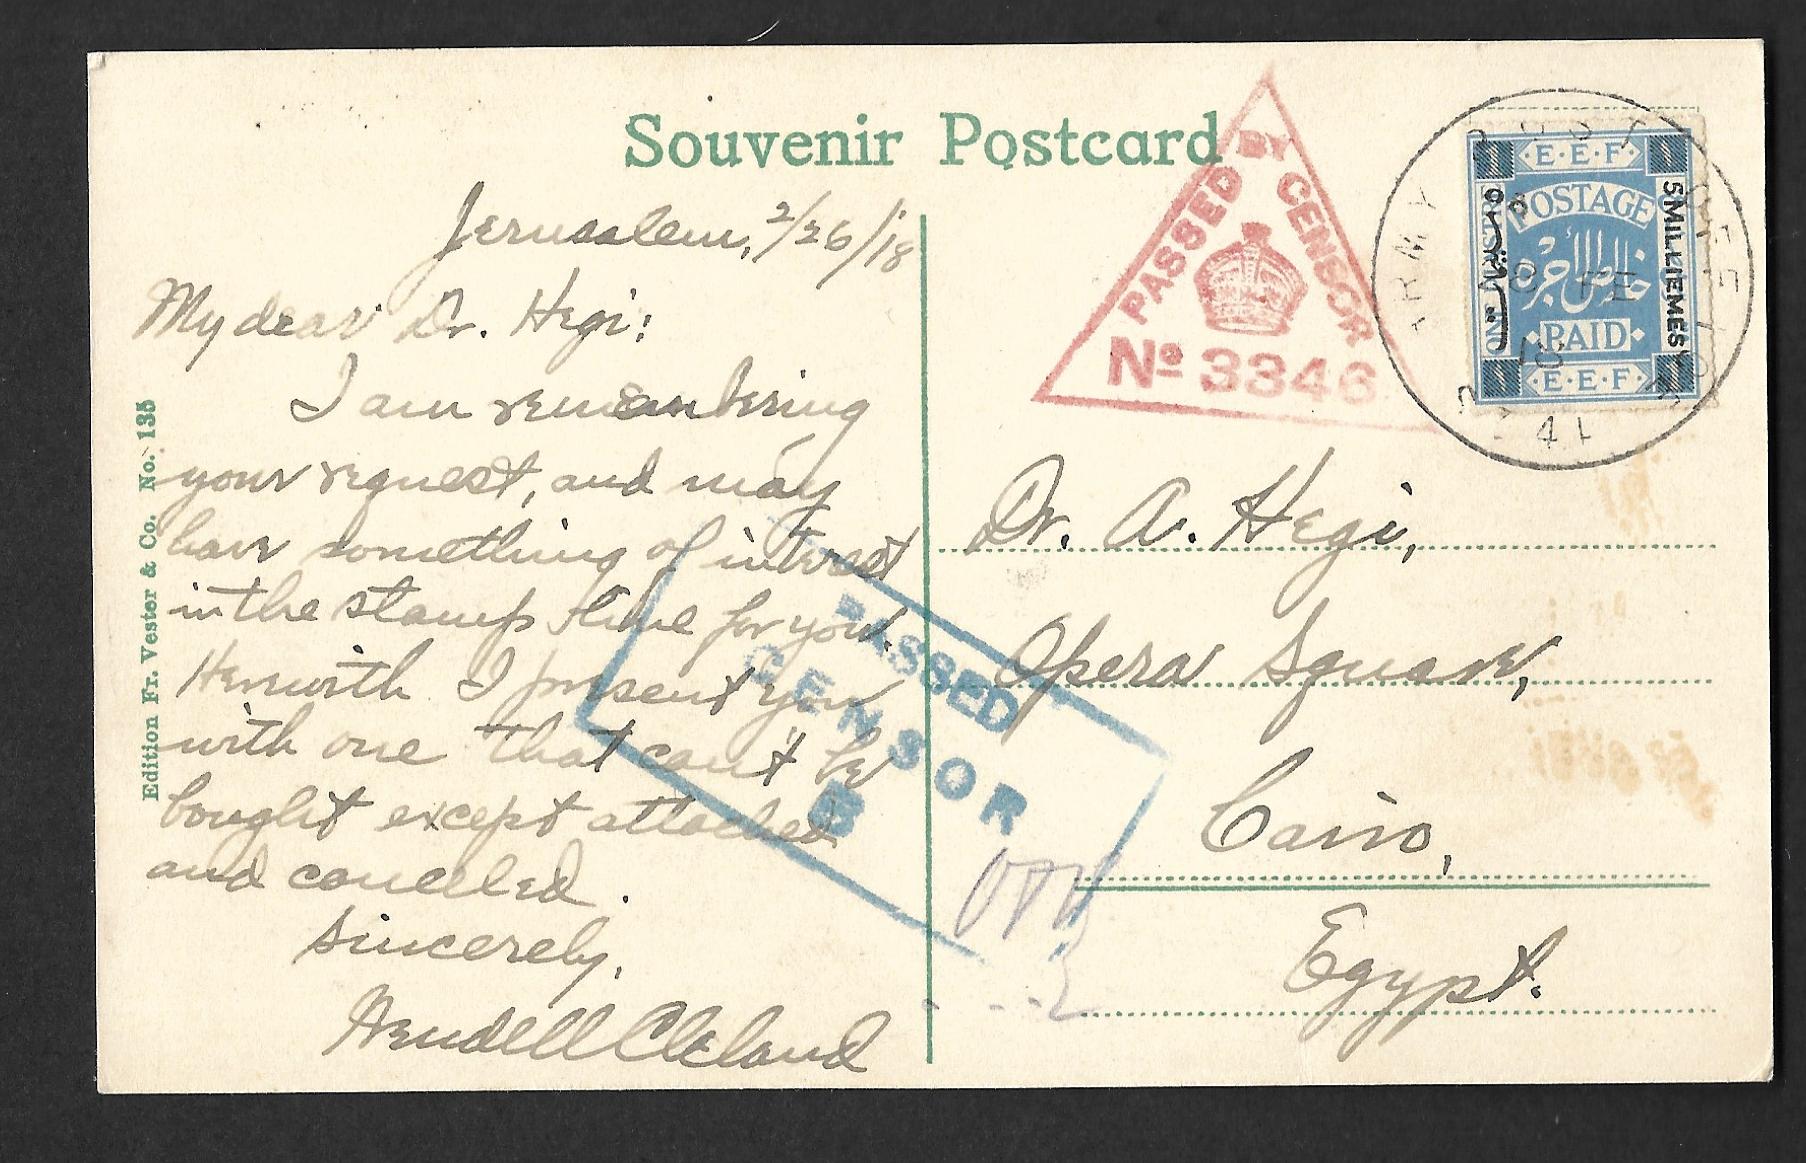 Souvenir Postcard
Jerusalem, 2/26/18
My dear Dr. Hegi:
I am remembering
your request, and may
have something of interest
in the stamp line for you.
Herewith I present you
with one that can't be
bought except attached
and canceled.
Sincerely,
Wendell Cleland
Edition Fr. Vester & Co. No. 135
PASSED BY CENSOR
No 3346
ARMY POST OFFICE
FE
18
SZ 41
·E·E·F·
POSTAGE
خالص الأجرة
PAID
·E·E·F·
5 MILLIEMES
Dr. A. Hegi,
Opera Square,
Cairo,
Egypt.
PASSED
CENSOR